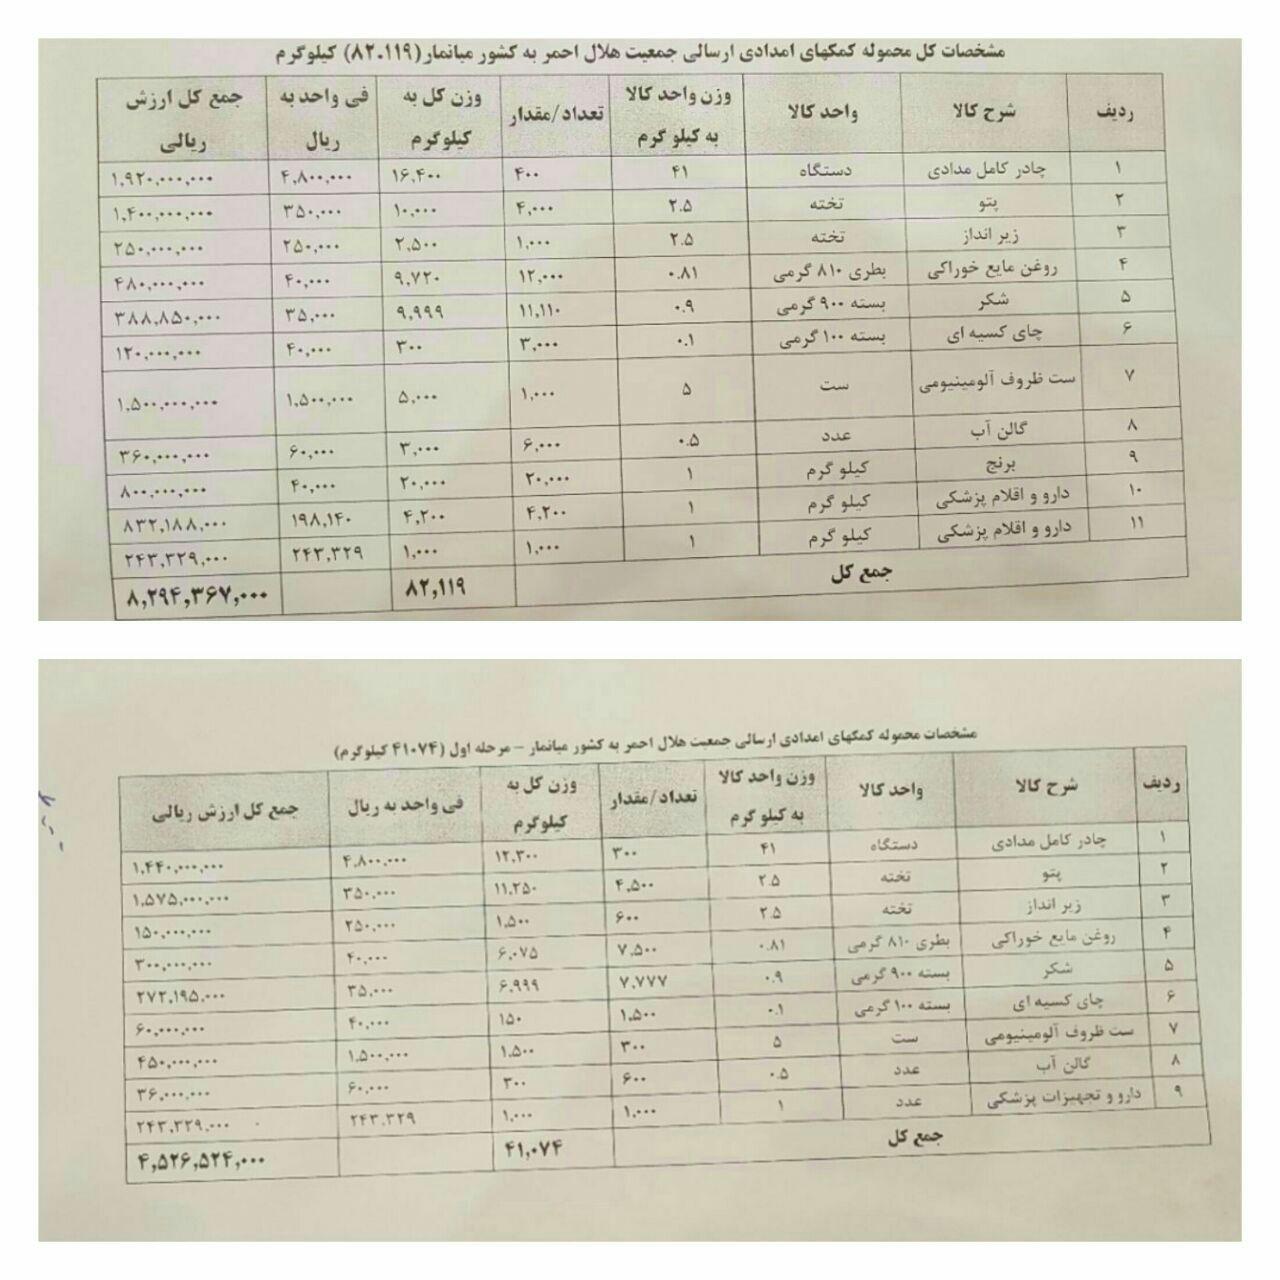 مشخصات کل محموله کمکهای امدادی ارسالی جمعیت هلال احمر به کشور میانمار(۸۲.۱۱۹) کیلوگرم
ردیف شرح کالا واحد کالا وزن واحد کالا به کیلو گرم تعداد/مقدار وزن کل به کیلوگرم فی واحد به ریال جمع کل ارزش ریالی
۱ چادر کامل مدادی دستگاه ۴۱ ۴۰۰ ۱۶,۴۰۰ ۴,۸۰۰,۰۰۰ ۱,۹۲۰,۰۰۰,۰۰۰
۲ پتو تخته ۲.۵ ۴,۰۰۰ ۱۰,۰۰۰ ۳۵۰,۰۰۰ ۱,۴۰۰,۰۰۰,۰۰۰
۳ زیر انداز تخته ۲.۵ ۱,۰۰۰ ۲,۵۰۰ ۲۵۰,۰۰۰ ۲۵۰,۰۰۰,۰۰۰
۴ روغن مایع خوراکی بطری ۸۱۰ گرمی ۰.۸۱ ۱۲,۰۰۰ ۹,۷۲۰ ۴۰,۰۰۰ ۴۸۰,۰۰۰,۰۰۰
۵ شکر بسته ۹۰۰ گرمی ۰.۹ ۱۱,۱۱۰ ۹,۹۹۹ ۳۵,۰۰۰ ۳۸۸,۸۵۰,۰۰۰
۶ چای کسیه ای بسته ۱۰۰ گرمی ۰.۱ ۳,۰۰۰ ۳۰۰ ۴۰,۰۰۰ ۱۲۰,۰۰۰,۰۰۰
۷ ست ظروف آلومینیومی ست ۵ ۱,۰۰۰ ۵,۰۰۰ ۱,۵۰۰,۰۰۰ ۱,۵۰۰,۰۰۰,۰۰۰
۸ گالن آب عدد ۰.۵ ۶,۰۰۰ ۳,۰۰۰ ۶۰,۰۰۰ ۳۶۰,۰۰۰,۰۰۰
۹ برنج کیلو گرم ۱ ۲۰,۰۰۰ ۲۰,۰۰۰ ۴۰,۰۰۰ ۸۰۰,۰۰۰,۰۰۰
۱۰ دارو و اقلام پزشکی کیلو گرم ۱ ۴,۲۰۰ ۴,۲۰۰ ۱۹۸,۱۴۰ ۸۳۲,۱۸۸,۰۰۰
۱۱ دارو و اقلام پزشکی کیلو گرم ۱ ۱,۰۰۰ ۱,۰۰۰ ۲۴۳,۳۲۹ ۲۴۳,۳۲۹,۰۰۰
جمع کل ۸۲,۱۱۹ ۸,۲۹۴,۳۶۷,۰۰۰
مشخصات محموله کمکهای امدادی ارسالی جمعیت هلال احمر به کشور میانمار – مرحله اول (۴۱۰۷۴ کیلوگرم)
ردیف شرح کالا واحد کالا وزن واحد کالا به کیلو گرم تعداد/مقدار وزن کل به کیلوگرم فی واحد به ریال جمع کل ارزش ریالی
۱ چادر کامل مدادی دستگاه ۴۱ ۳۰۰ ۱۲,۳۰۰ ۴,۸۰۰,۰۰۰ ۱,۴۴۰,۰۰۰,۰۰۰
۲ پتو تخته ۲.۵ ۴,۵۰۰ ۱۱,۲۵۰ ۳۵۰,۰۰۰ ۱,۵۷۵,۰۰۰,۰۰۰
۳ زیر انداز تخته ۲.۵ ۶۰۰ ۱,۵۰۰ ۲۵۰,۰۰۰ ۱۵۰,۰۰۰,۰۰۰
۴ روغن مایع خوراکی بطری ۸۱۰ گرمی ۰.۸۱ ۷,۵۰۰ ۶,۰۷۵ ۴۰,۰۰۰ ۳۰۰,۰۰۰,۰۰۰
۵ شکر بسته ۹۰۰ گرمی ۰.۹ ۷,۷۷۷ ۶,۹۹۹ ۳۵,۰۰۰ ۲۷۲,۱۹۵,۰۰۰
۶ چای کسیه ای بسته ۱۰۰ گرمی ۰.۱ ۱,۵۰۰ ۱۵۰ ۴۰,۰۰۰ ۶۰,۰۰۰,۰۰۰
۷ ست ظروف آلومینیومی ست ۵ ۳۰۰ ۱,۵۰۰ ۱,۵۰۰,۰۰۰ ۴۵۰,۰۰۰,۰۰۰
۸ گالن آب عدد ۰.۵ ۶۰۰ ۳۰۰ ۶۰,۰۰۰ ۳۶,۰۰۰,۰۰۰
۹ دارو و تجهیزات پزشکی عدد ۱ ۱,۰۰۰ ۱,۰۰۰ ۲۴۳,۳۲۹ ۲۴۳,۳۲۹,۰۰۰
جمع کل ۴۱,۰۷۴ ۴,۵۲۶,۵۲۴,۰۰۰